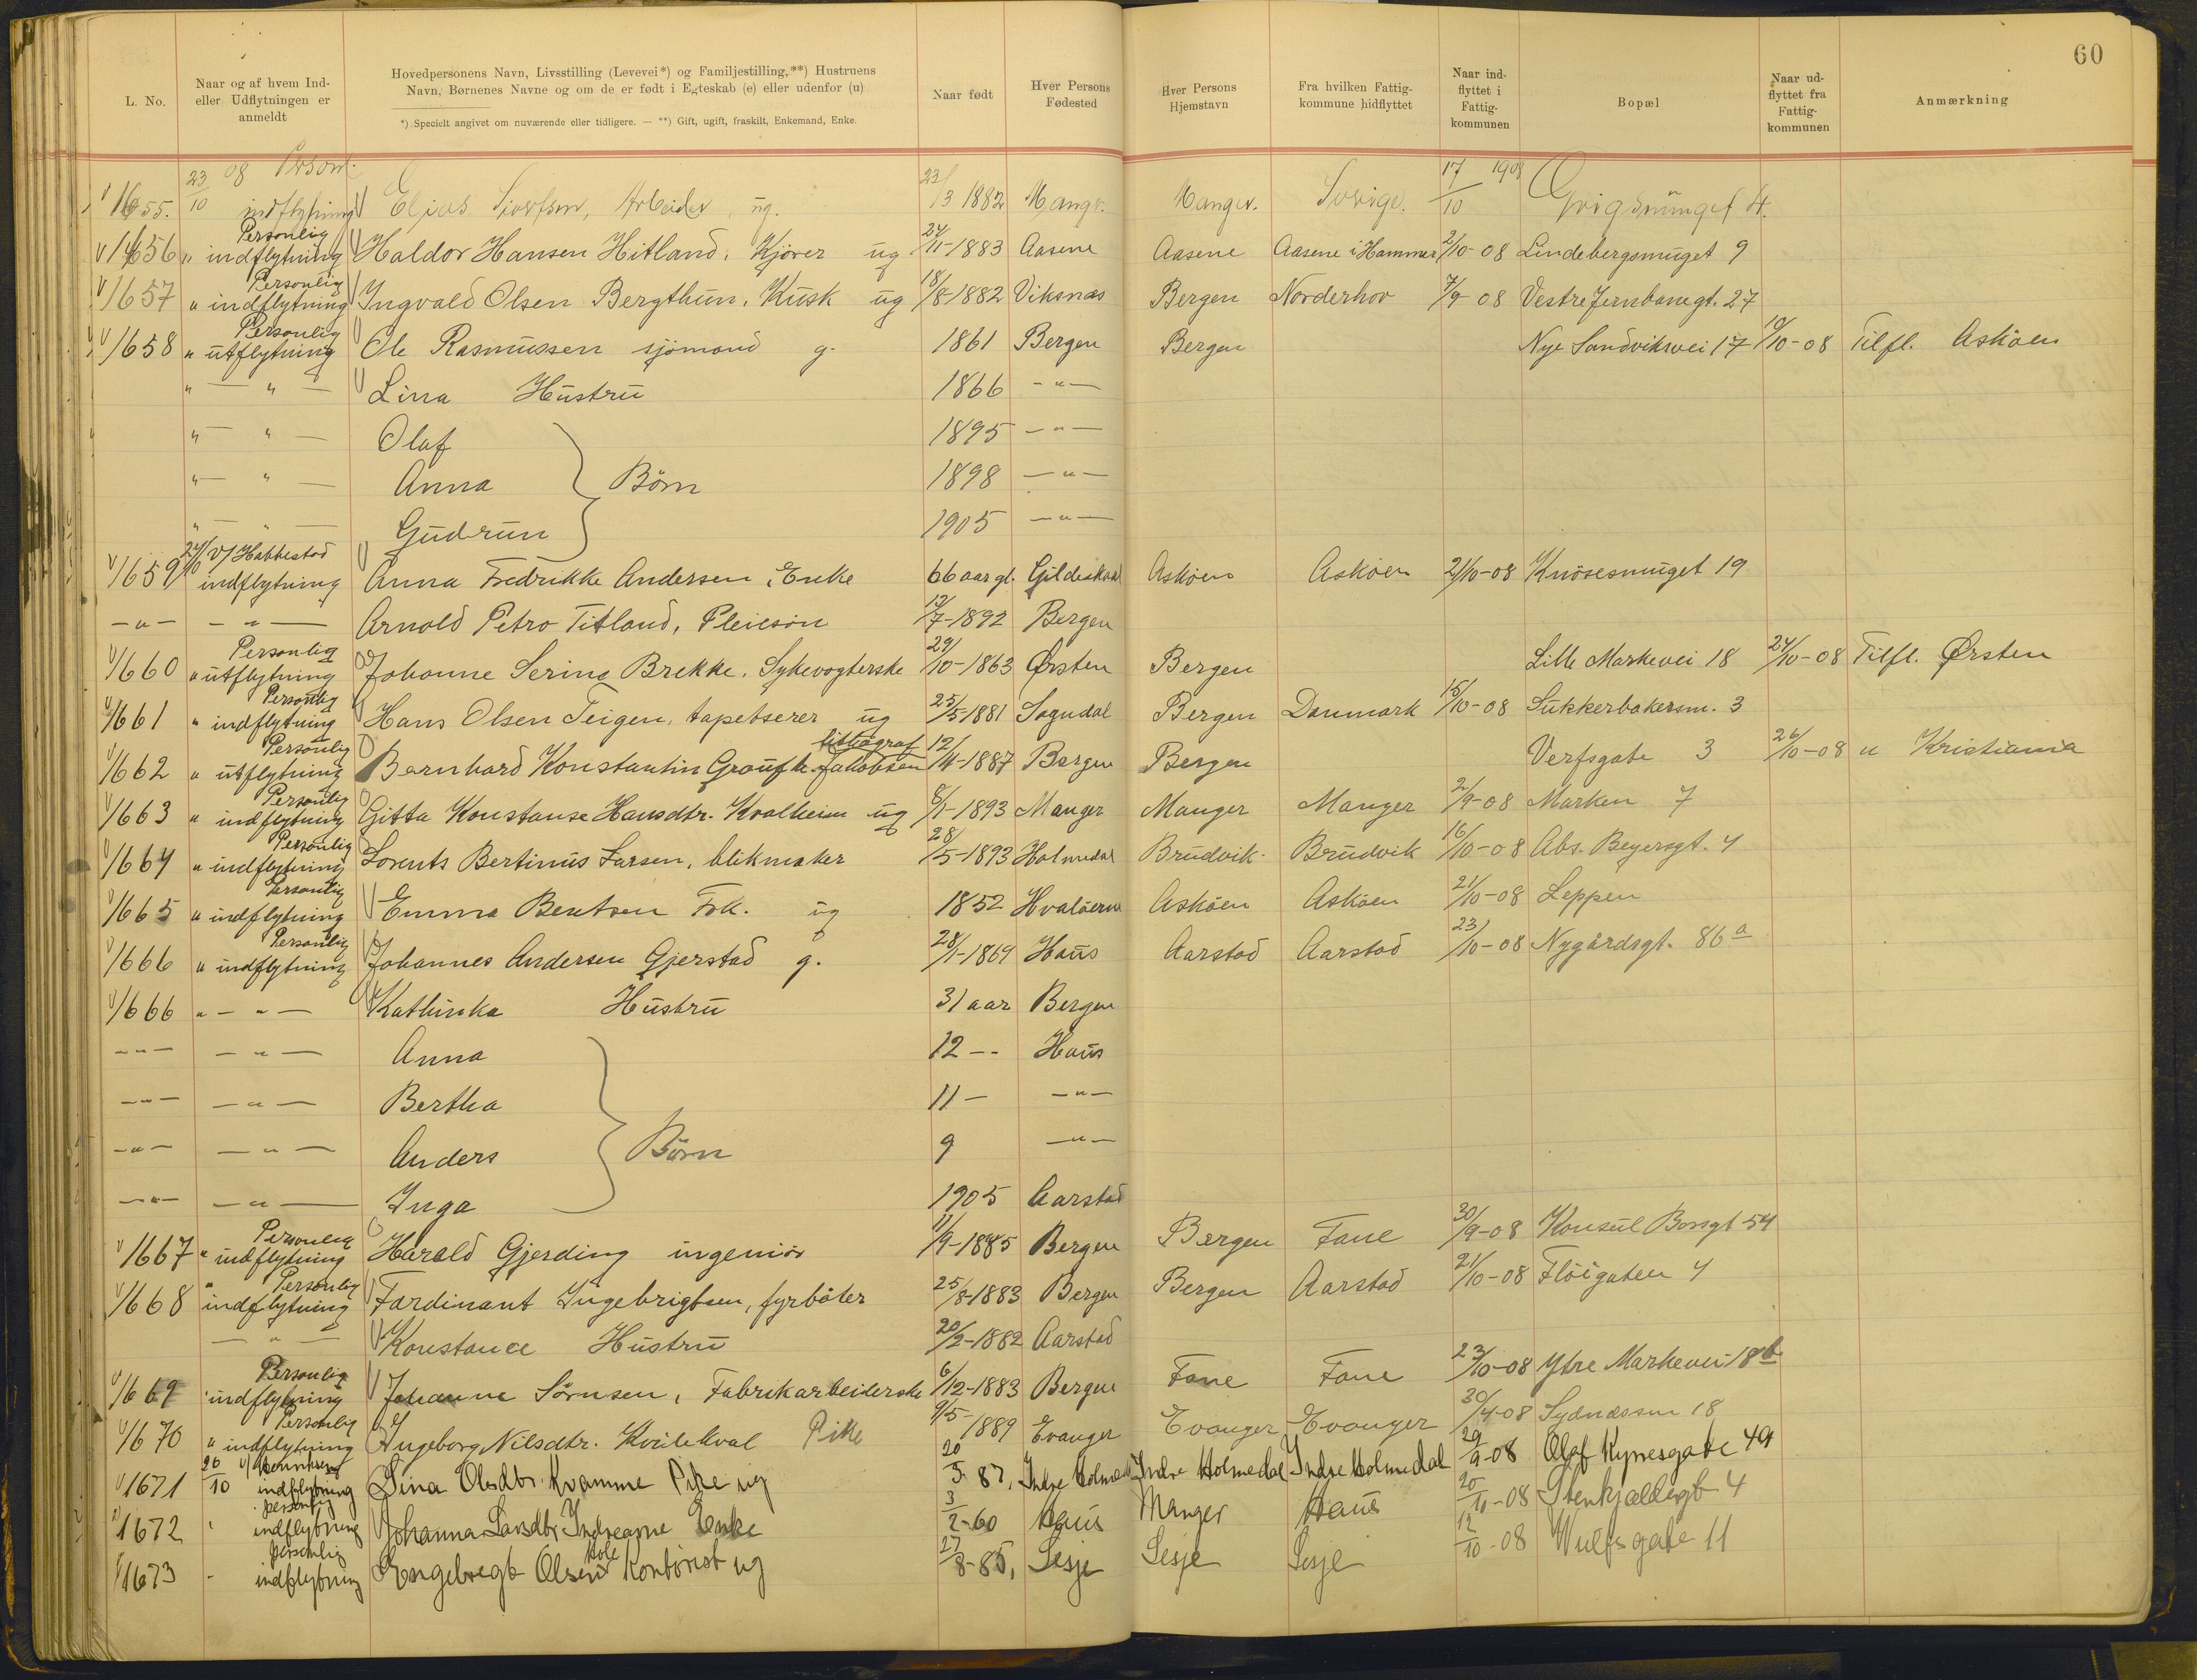 60
L. No.
Naar og af hvem Ind-
eller Udflytningen er
anmeldt
Hovedpersonens Navn, Livsstilling (Levevei*) og Familjestilling,**) Hustruens
Navn, Børnenes Navne og om de er født i Egteskab (e) eller udenfor (u)
*) Specielt angivet om nuværende eller tidligere. — **) Gift, ugift, fraskilt, Enkemand, Enke.
Naar født
Hver Persons
Fødested
Hver Persons
Hjemstavn
Fra hvilken Fattig-
kommune hidflyttet
Naar ind-
flyttet i
Fattig-
kommunen
Bopæl
Naar ud-
flyttet fra
Fattig-
kommunen
Anmærkning
1655. 23/10 08 Person. indflytning Elias Siversen, Arbeider, ug. 23/3 1882 Mang. Manger. Sverige. 17/10 1908 Grigsmuget 4.
1656 " Personlig indflytning Haldor Hansen Hitland, Kjører ug 24/11-1883 Aasene Aasene Aasene i Hammer 2/10-08 Lindebergsmuget 9
1657 " Personlig indflytning Ingvald Olsen Bergthun, Kusk ug 18/8-1882 Viksnæs Bergen Norderhov 7/9-08 Vestre Jernbanegt. 27
1658 " Personlig utflytning Ole Rasmussen sjømand g. 1861 Bergen Bergen Nye Sandviksvei 17 10/10-08 Tilfl. Askøen
" — " — Lina Hustru 1866 — " —
" — " — Olaf 1895 — " —
" — " — Anna Børn 1898 — " —
" — " — Gudrun 1905 — " —
1659 24/10 v/ Habbestad indflytning Anna Fredrikke Andersen, Enke 66 aar gl. Gildeskaal Askøen Askøen 21/10-08 Knøsesmuget 19
— " — — " — Arnold Petro Titland, Pleiesøn 12/7-1892 Bergen
1660 " Personlig utflytning Johanne Serine Brekke, Sykevogterske 29/10-1863 Ørsten Bergen Lille Markevei 18 24/10-08 Tilfl. Ørsten
1661 " Personlig indflytning Hans Olsen Teigen, tapetserer ug 25/5-1881 Sogndal Bergen Danmark 15/10-08 Sukkerbakersm. 3
1662 " Personlig utflytning Bernhard Konstantin Jakobsen litograf 12/4-1887 Bergen Bergen Verfsgate 3 26/10-08 " Kristiania
1663 " Personlig indflytning Gitta Konstanse Hansdtr. Kvalheim ug 8/1-1893 Manger Manger Manger 2/9-08 Marken 7
1664 " Personlig indflytning Lorents Bertinus Larsen, blikmaker 28/5-1893 Holmedal Brudvik Brudvik 16/10-08 Abs. Beyersgt. 4
1665 " Personlig indflytning Emma Bentsen Frk. ug 1852 Hvaløerne Askøen Askøen 21/10-08 Leppen
1666 " Personlig indflytning Johannes Andersen Gjerstad g. 28/1-1869 Haus Aarstad Aarstad 23/10-08 Nygårdsgt. 86 a
1666 " — " — Kathinka Hustru 31 aar Bergen
— " — — " — Anna 12 — Haus
— " — — " — Bertha 11 — — " —
— " — — " — Anders Børn 9 — " —
— " — — " — Inga 1905 Aarstad
1667 " Personlig indflytning Harald Gjerding ingeniør 11/9-1885 Bergen Bergen Fane 30/9-08 Konsul Børsgt 54
1668 " Personlig indflytning Ferdinant Ingebrigtsen, fyrbøter 25/8-1883 Bergen Bergen Aarstad 21/10-08 Fløigaten 4
— " — Konstance Hustru 20/2-1882 Aarstad
1669 " Personlig indflytning Johanne Sørnsen, Fabrikarbeiderske 6/12-1883 Bergen Fane Fane 23/10-08 Ytre Markevei 18 b
1670 " Personlig indflytning Ingeborg Nilsdtr. Kvilekval Pike 9/5 1889 Evanger Evanger Evanger 30/4-08 Sydnæssm 18
1671 26/10 v/ Henriksen indflytning Sina Olsdtr. Kvamme Pike ug 20/5 87, Indre Holmedal Indre Holmedal Indre Holmedal 29/9-08 Olaf Kyrresgate 49
1672 " personlig indflytning Johanna Larsdtr Indrearne Enke 3/2-60 Haus Manger Haus 20/10-08 Stenkjeldergt 4
1673 " personlig indflytning Engebregt Olsen Kontorist ug 27/8-85, Lesje Lesje Lesje 12/10-08 Wulfsgate 11